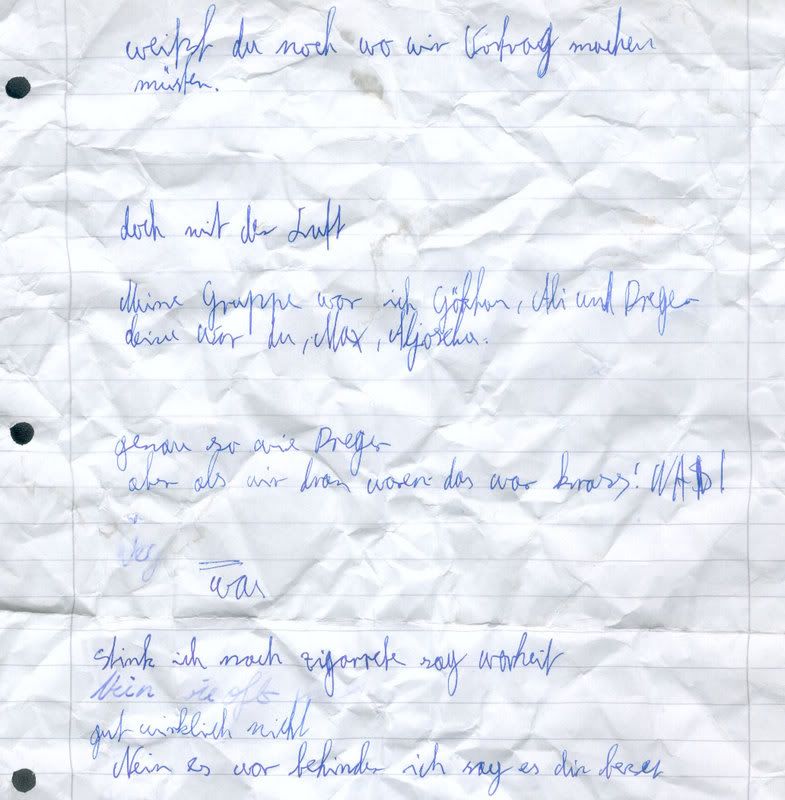 weißt du noch wo wir Vortrag machen
müsten.
doch mit der Luft
Meine Gruppe war ich Gökhan, Ali und Dreger
deine war du, Max, Aljoscha.
genau so wie Dreger
aber als wir dran waren das war krass! WAS!
was
stink ich nach zigarrete say warheit
Nein
gut wirklich nicht
Nein es war behinder ich say es dir besser